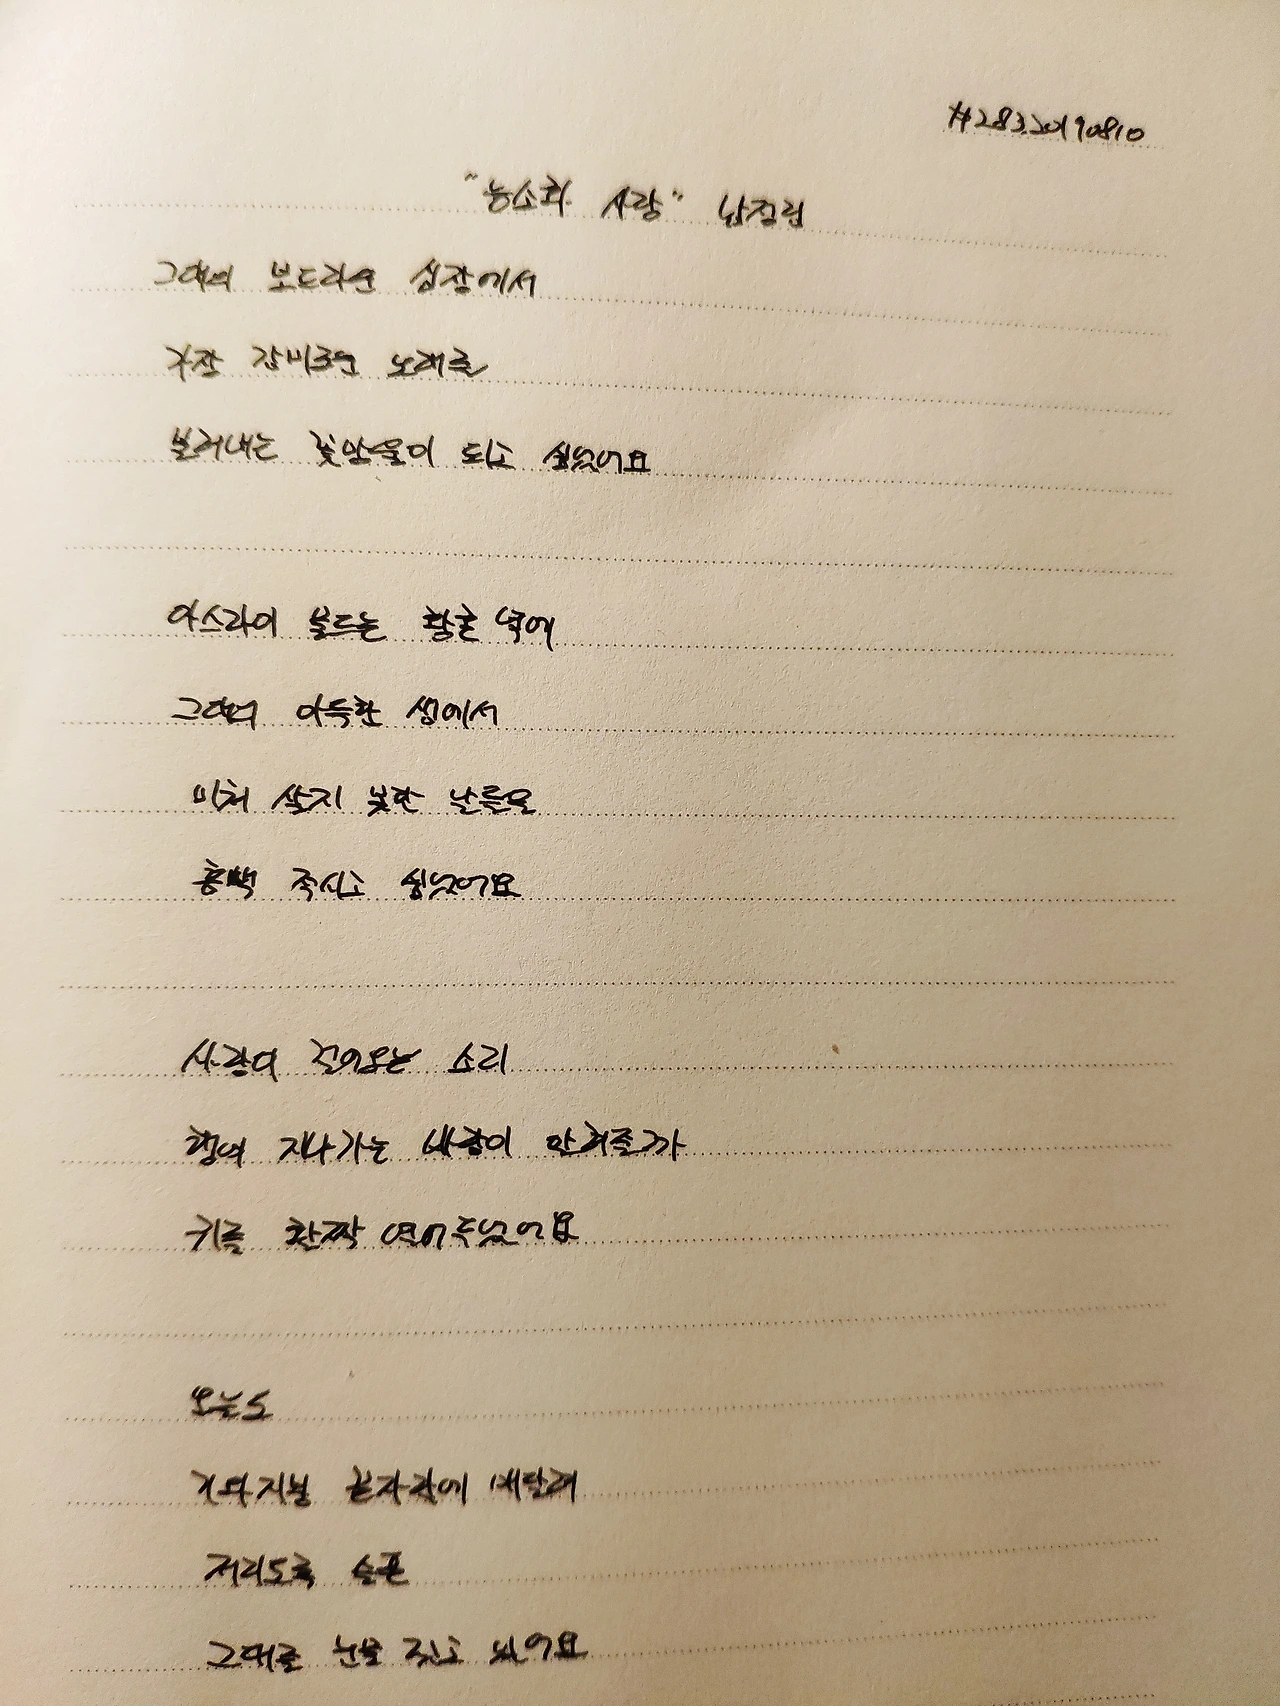 #283.20190810
"능소화 사랑" 남정림
그대의 보드라운 심장에서
가장 감미로운 노래를
불러내는 꽃망울이 되고 싶었어요
아스라이 물드는 황혼 녘에
그대의 아득한 생에서
미처 살지 못한 날들을
흠뻑 적시고 싶었어요
사랑이 걸어오는 소리
행여 지나가는 바람이 알려줄까
귀를 활짝 열어두었어요
오늘도
기와지붕 끝자락에 매달려
저리도록 슬픈
그대를 눈물 짓고 있어요